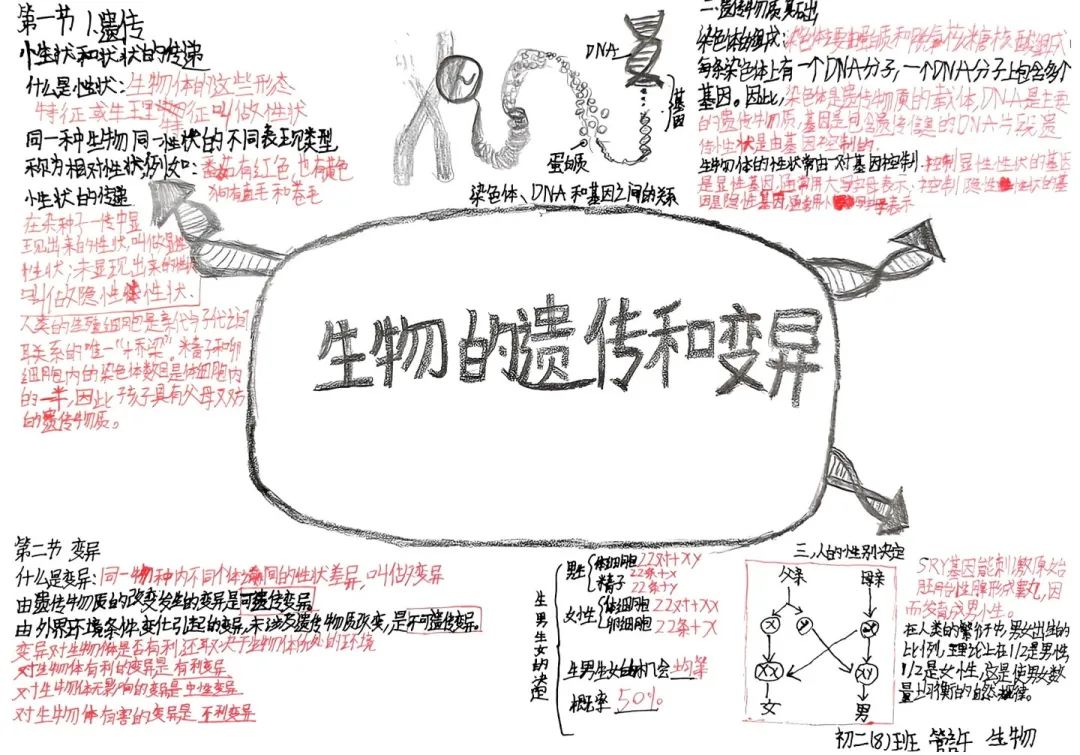 第一节 1.遗传
小生状和状状的传递
什么是性状:生物体的这些形态
特征或生理特征叫做性状
同一种生物同一性状的不同表现类型
称为相对性状,例如:番茄有红色,也有黄色
狗有直毛和卷毛
小性状的传递
在杂种子一代中显
现出来的性状,叫做显性
性状;未显现出来的性状
叫做隐性性状.
人类的生殖细胞是亲代与子代之间
联系的唯一"桥梁".精子和卵
细胞内的染色体数目是体细胞内
的一半,因此孩子具有父母双方
的遗传物质。
DNA
基因
蛋白质
染色体、DNA和基因之间的关系
二.遗传物质基础
染色体的组成:染色体主要由蛋白质和脱氧核糖核酸组成
每条染色体上有一个DNA分子,一个DNA分子上包含多个
基因。因此,染色体是遗传物质的载体,DNA是主要
的遗传物质,基因是包含遗传信息的DNA片段遗
传性状是由基因控制的.
生物体的性状常由一对基因控制.控制显性性状的基因
是显性基因,通常用大写字母表示,控制隐性性状的基
因是隐性基因,通常用小写字母表示
生物的遗传和变异
第二节 变异
什么是变异:同一物种内不同个体之间的性状差异,叫做变异
由遗传物质的改变发生的变异是可遗传变异.
由外界环境条件变化引起的变异,未涉及遗传物质改变,是不可遗传变异.
变异对生物体是否有利,还取决于生物体所处的环境
对生物体有利的变异是有利变异
对生物体无影响的变异是中性变异
对生物体有害的变异是不利变异
生男生女的决定
男性 体细胞 22对+XY
精子 22条+X
22条+Y
女性 体细胞 22对+XX
卵细胞 22条+X
生男生女的机会 均等
概率 50%
三,人的性别决定
父亲 母亲
X
XX XY
女 男
SRY基因能刺激原始
胚胎性腺形成睾丸,因
而发育成男小生.
在人类的繁衍中,男女出生的
比例,理论上在1/2是男性
1/2是女性,这是使男女数
量上均衡的自然规律。
初二(8)班 管許 生物